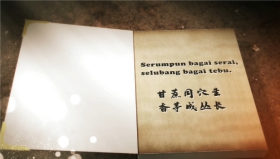 Serumpun bagai serai,
selubang bagai tebu.
甘蔗同穴生
香茅成丛长